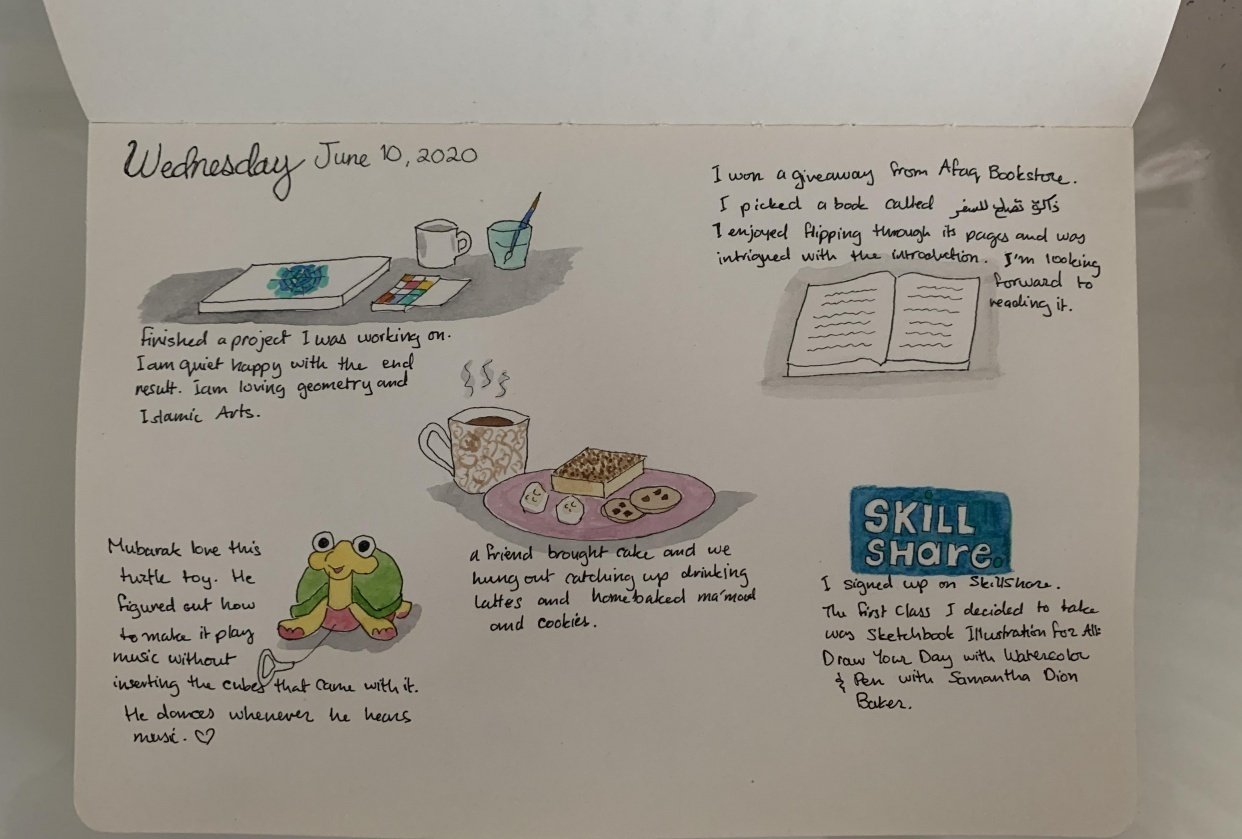 Wednesday June 10, 2020
I won a giveaway from Afaq Bookstore.
I picked a book called ذاكرة تصلح للسفر
I enjoyed flipping through its pages and was
intrigued with the introduction. I'm looking
forward to
reading it.
Finished a project I was working on.
I am quiet happy with the end
result. I am loving geometry and
Islamic Arts.
a friend brought cake and we
hung out catching up drinking
lattes and homebaked ma'moul
and cookies.
Mubarak love this
turtle toy. He
figured out how
to make it play
music without
inserting the cubes that came with it.
He dances whenever he hears
music. ♡
SKILL
SHare.
I signed up on Skillshare.
The first class I decided to take
was Sketchbook Illustration for All:
Draw Your Day with Watercolor
& Pen with Samantha Dion
Baker.